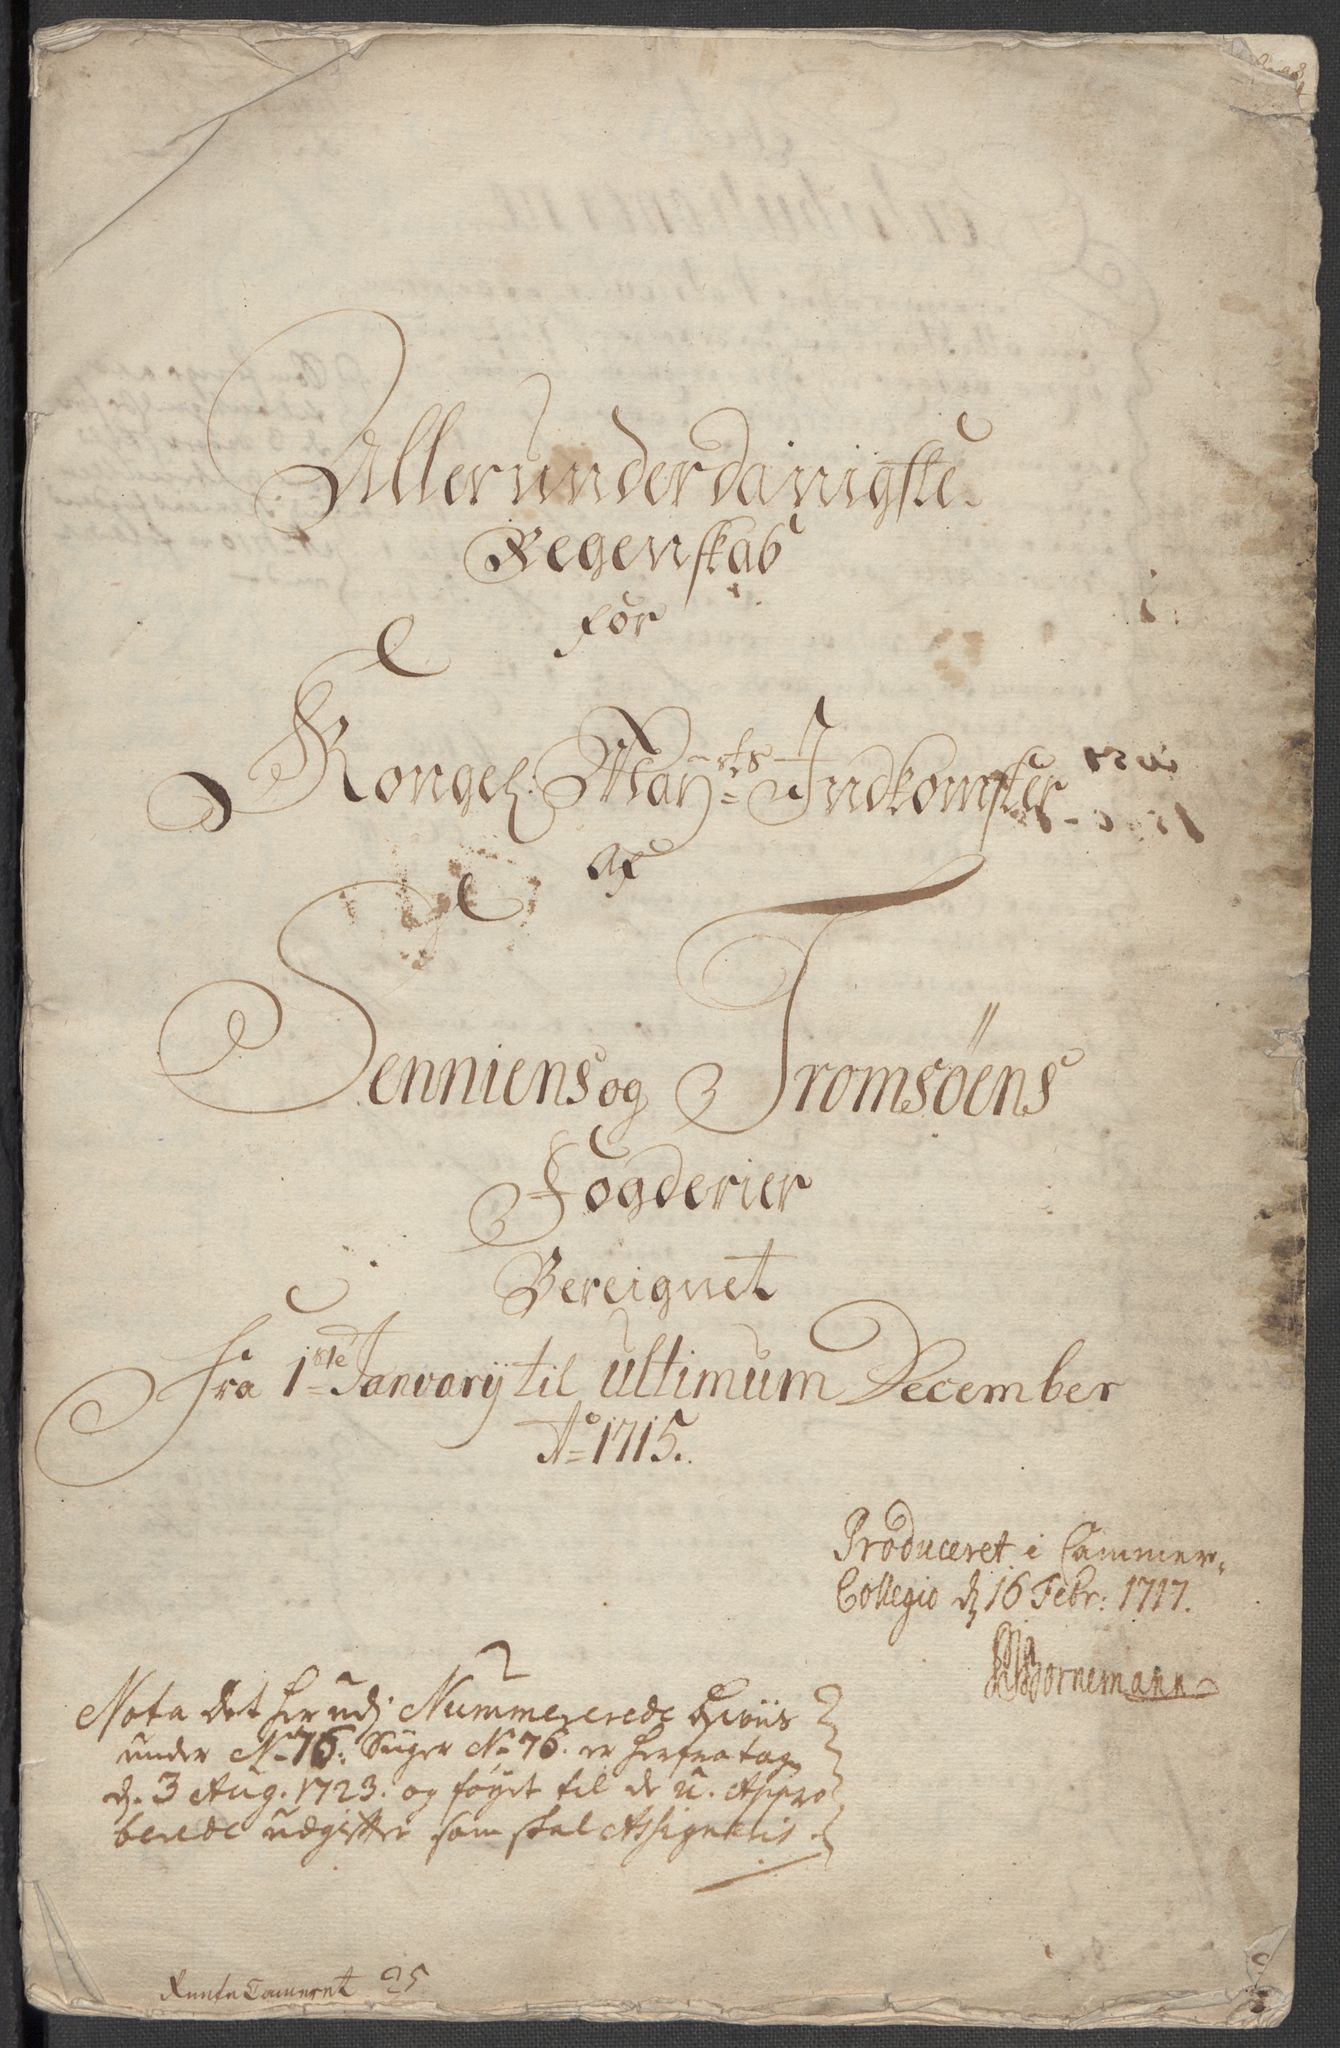 Allerunderdanigste
Regenskab
for
Kongel: May:sts Indkomster
af
Senniens og Tromsøens
Fogderier
Bereignet
Fra 1ste Janvarij til ultimum December
Ao 1715.
Produceret i Cammer-
Collegio d 16 Febr: 1717.
Bornemann
Nota det her udj Nummererede Beviis
under No 76: Siger No 76. er herfra tag
d. 3 Aug. 1723. og føyet til de u. Appro
berede udgifter som skal Assigneris.
RenteCameret 25